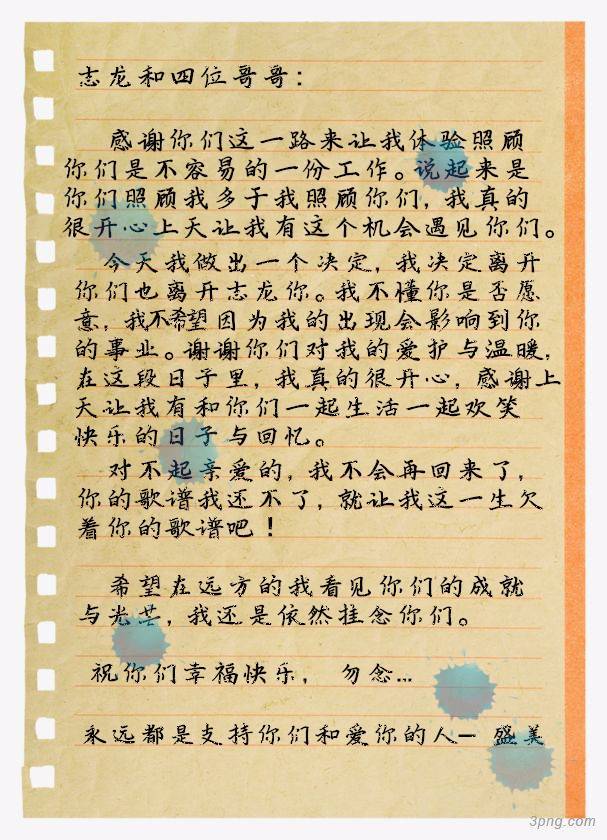 志龙和四位哥哥：
感谢你们这一路来让我体验照顾
你们是不容易的一份工作。说起来是
你们照顾我多于我照顾你们，我真的
很开心上天让我有这个机会遇见你们。
今天我做出一个决定，我决定离开
你们也离开志龙你。我不懂你是否愿
意，我不希望因为我的出现会影响到你
的事业。谢谢你们对我的爱护与温暖，
在这段日子里，我真的很开心，感谢上
天让我有和你们一起生活一起欢笑
快乐的日子与回忆。
对不起亲爱的，我不会再回来了，
你的歌谱我还不了，就让我这一生欠
着你的歌谱吧！
希望在远方的我看见你们的成就
与光芒，我还是依然挂念你们。
祝你们幸福快乐，勿念...
永远都是支持你们和爱你的人— 盛美
3png.com